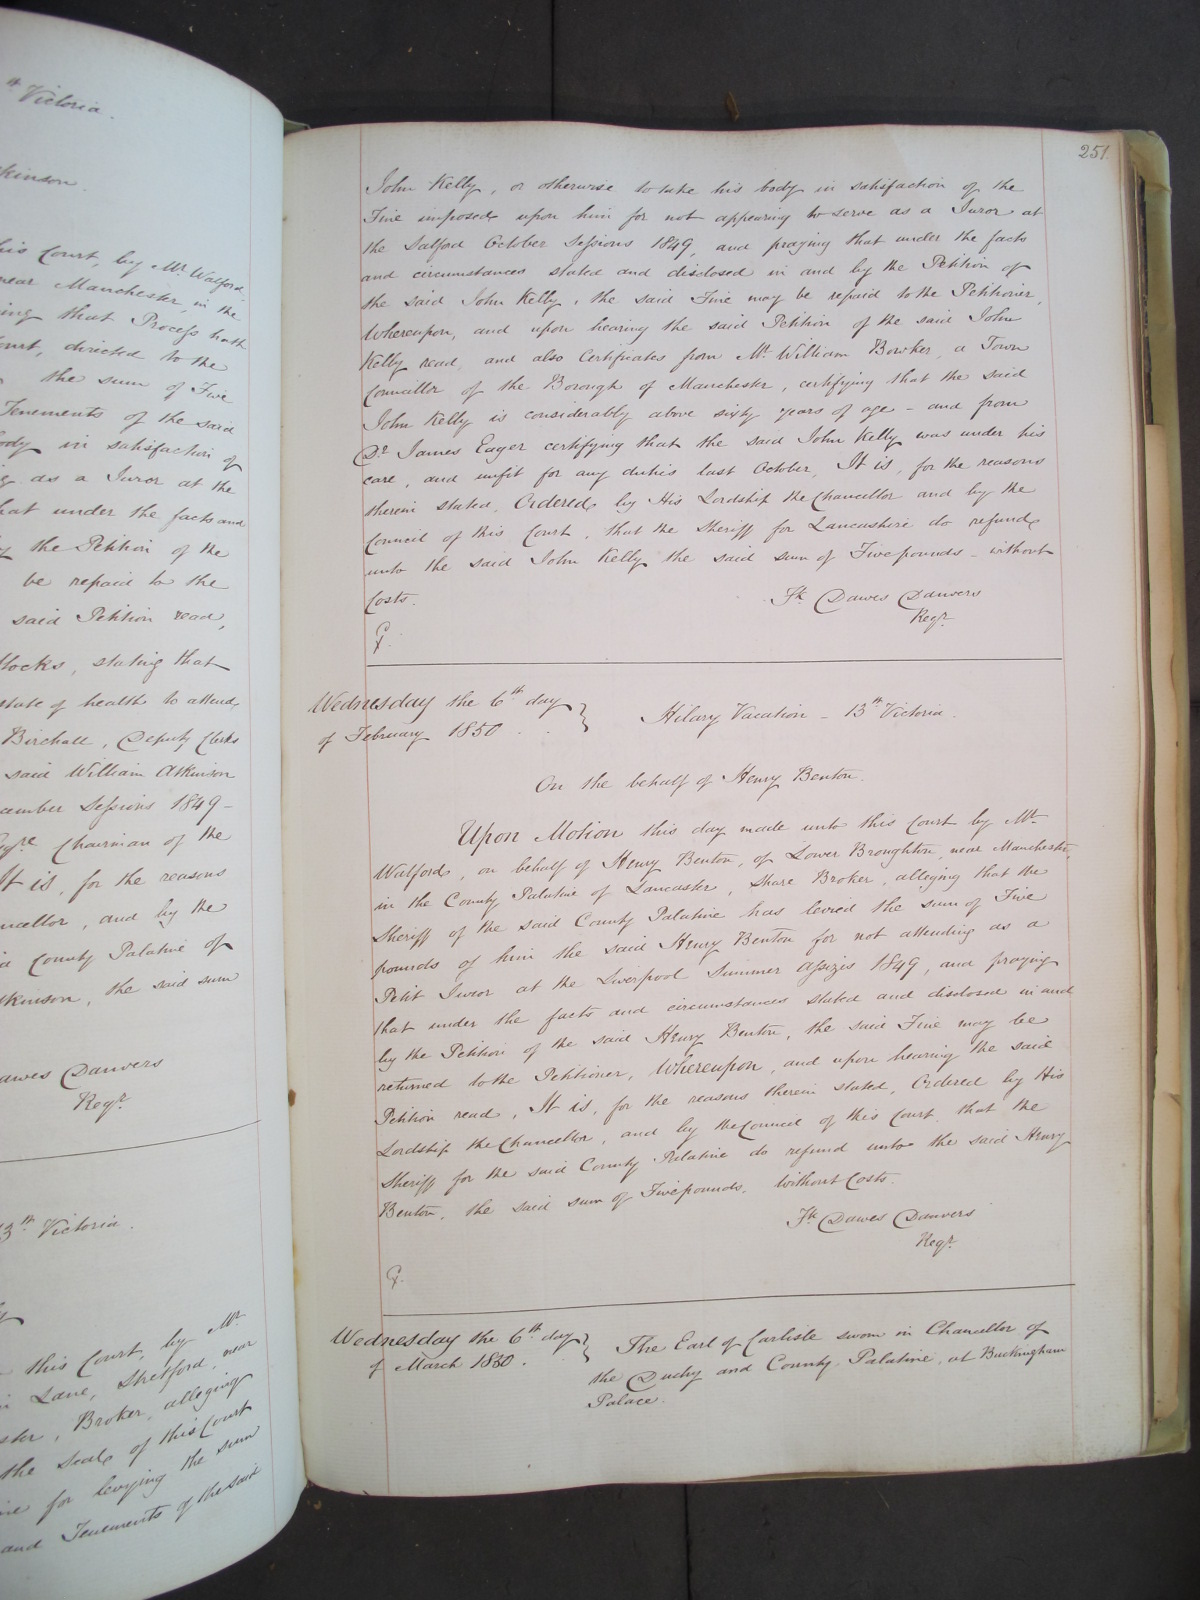 th Victoria.
kinson.
his Court, by Mr. Walford
near Manchester, in the
ing that Process hath
ourt, directed to the
the sum of Five
Tenements of the said
ody in satisfaction of
as a Juror at the
hat under the facts and
the Petition of the
be repaid to the
said Petition read,
locks, stating that
state of health to attend
Birchall, Deputy Clerks
said William Atkinson
cember Sessions 1849 -
Esqre. Chairman of the
It is, for the reasons
ncellor, and by the
County Palatine of
tkinson, the said sum
awes Danvers
Regr.
13th Victoria.
this Court, by Mr.
Lane, Stretford, near
ster, Broker, alleging
the Seal of this Court
for levying the sum
and Tenements of the said
251.
John Kelly, or otherwise to take his body in satisfaction of the
Fine imposed upon him for not appearing to serve as a Juror at
the Salford October Sessions 1849, and praying that under the facts
and circumstances stated and disclosed in and by the Petition of
the said John Kelly, the said Fine may be repaid to the Petitioner,
Whereupon, and upon hearing the said Petition of the said John
Kelly read, and also Certificates from Mr. William Bowker, a Town
Councillor of the Borough of Manchester, certifying that the said
John Kelly is considerably above sixty years of age - and from
Dr. James Eager certifying that the said John Kelly was under his
care, and unfit for any duties last October, It is, for the reasons
therein stated, Ordered by His Lordship the Chancellor and by the
Council of this Court, that the Sheriff for Lancashire do refund
unto the said John Kelly the said sum of Five pounds - without
Costs.
Fk. Dawes Danvers
Regr.
Wednesday the 6th day
of February 1850 . . } Hilary Vacation - 13th Victoria.
On the behalf of Henry Benton.
Upon Motion this day made unto this Court by Mr.
Walford, on behalf of Henry Benton, of Lower Broughton, near Manchester,
in the County Palatine of Lancaster, Share Broker, alleging that the
Sheriff of the said County Palatine has levied the sum of Five
pounds of him the said Henry Benton for not attending as a
Petit Juror at the Liverpool Summer Assizes 1849, and praying
that under the facts and circumstances stated and disclosed in and
by the Petition of the said Henry Benton, the said Fine may be
returned to the Petitioner, Whereupon, and upon hearing the said
Petition read, It is, for the reasons therein stated, Ordered by His
Lordship the Chancellor, and by the Council of this Court, that the
Sheriff for the said County Palatine do refund unto the said Henry
Benton, the said sum of Five pounds, without Costs.
Fk. Dawes Danvers
Regr.
Wednesday the 6th day
of March 1850. } The Earl of Carlisle sworn in Chancellor of
the Duchy and County Palatine, at Buckingham
Palace.